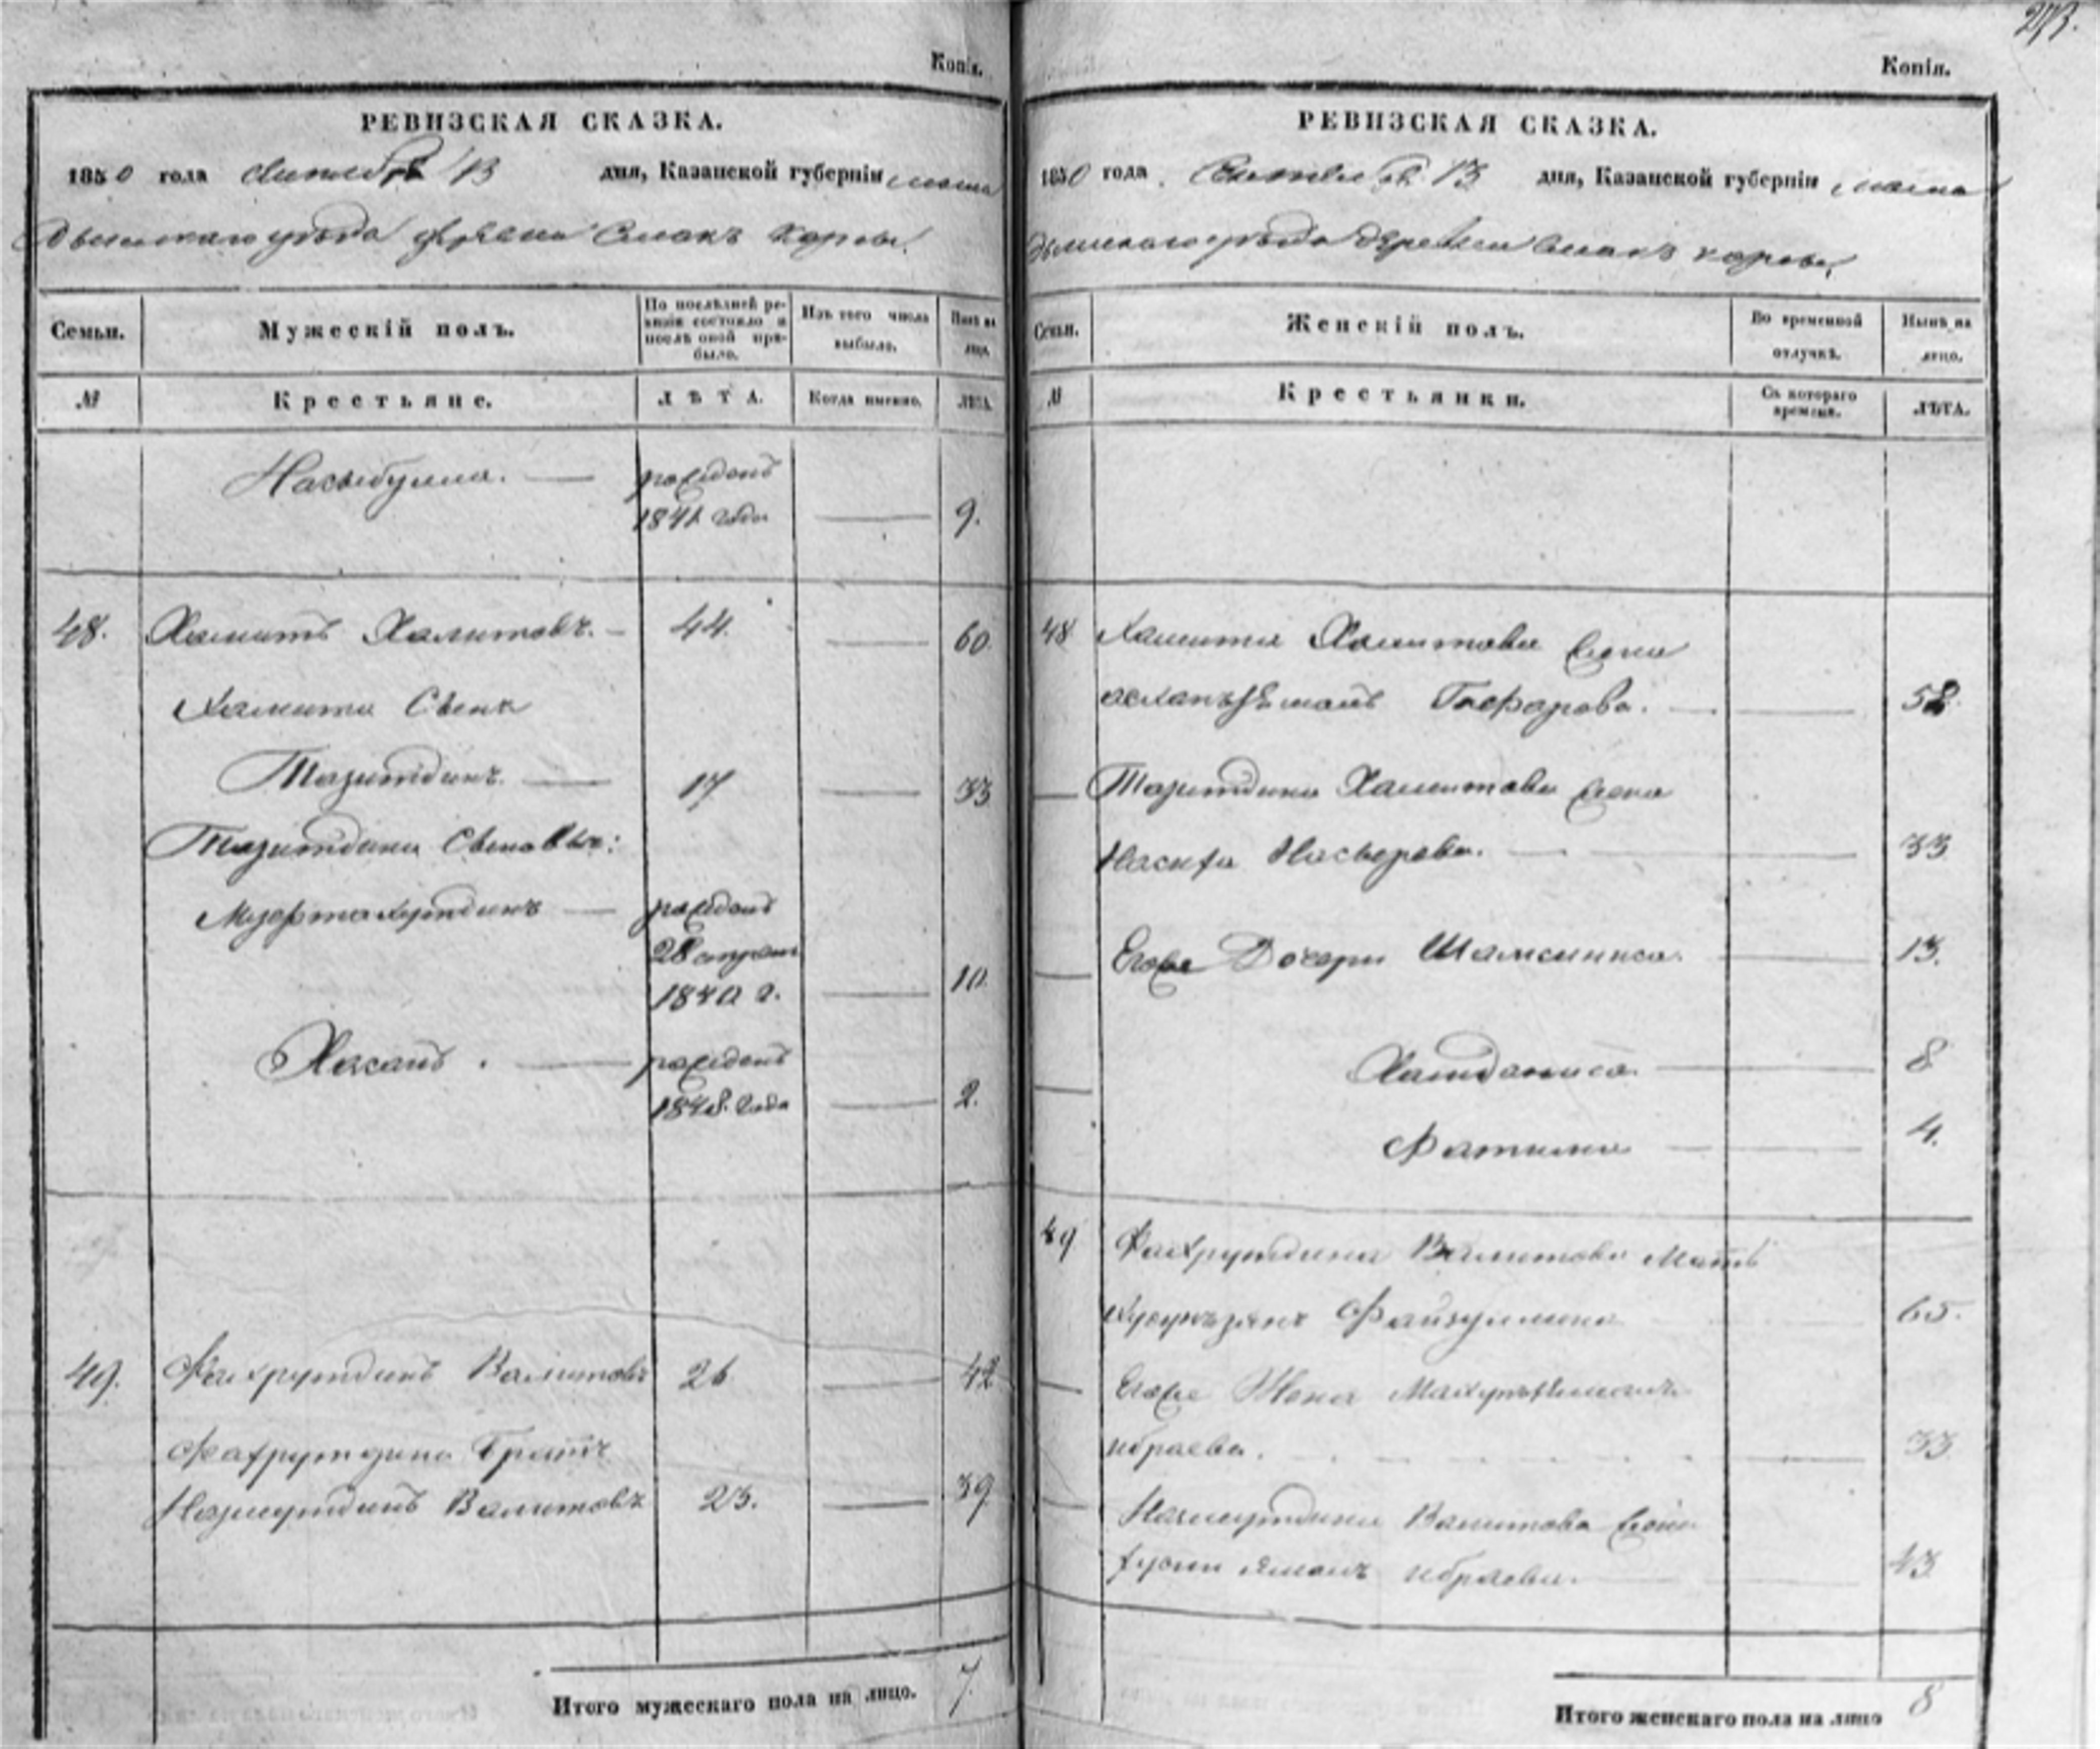 273.
Копія.
РЕВИЗСКАЯ СКАЗКА.
1850 года Сентября 13 дня, Казанской губерніи мама
дышскаго уѣзда деревни Смакъ Корсы.
Семьи.
Мужескій полъ.
По послѣдней ре-
визіи состояло и
послѣ оной при-
было.
Изъ того числа
выбыло.
Нынѣ на
лицо.
№
Крестьяне.
ЛѢТА.
Когда именно.
ЛѢТА.
Насыбулла. рожденъ
1841 года 9.
48. Хамитъ Халитовъ. 44. 60.
Хамита Сынъ
Тазитдинъ. 17 33
Тазитдина Сыновья:
Мифтахутдинъ рожденъ
28
1840 г. 10.
Хасанъ. рожденъ
1848. года 2.
49. Фахрутдинъ Валитовъ 26 42
Фахрутдина Братъ
Назмутдинъ Валитовъ 23. 39
Итого мужескаго пола на лицо. 7.
Копія.
РЕВИЗСКАЯ СКАЗКА.
1850 года Сентября 13 дня, Казанской губерніи мама
дышскаго уѣзда деревни Смакъ корсы,
Семьи.
Женскій полъ.
Во временной
отлучкѣ.
Нынѣ на
лицо.
№
Крестьянки.
Съ котораго
времени.
ЛѢТА.
48 Хамита Халитова жена
Гафарова. 58.
Тазитдина Хамитова жена
Насырова. 33
Егоже Дочери Шамсиниса. 13.
Хамданиса. 8
Фатима 4.
49 Фахрутдина Валитова Мать
Файзуллина 65.
Егоже Жена
ибраева. 33
Назмутдина Валитова жена
ибраева. 43
Итого женскаго пола на лицо 8